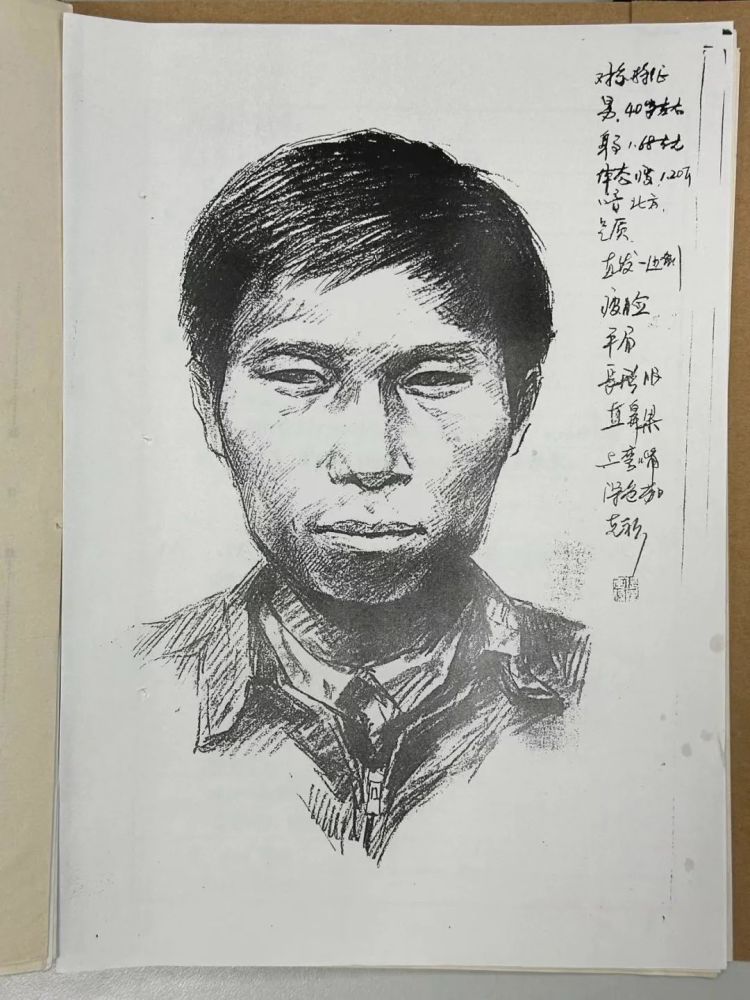 对象特征
男，40岁左右
身高1.68左右
体态瘦，120斤
口音北方，
气质
直发一边倒
瘦脸
平眉
长形眼
直鼻梁
上弯嘴
深色茄
克衫